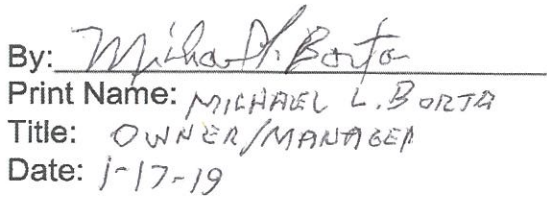 By: Michael L. Borta
Print Name: MICHAEL L. BORTA
Title: OWNER/MANAGER
Date: 1-17-19